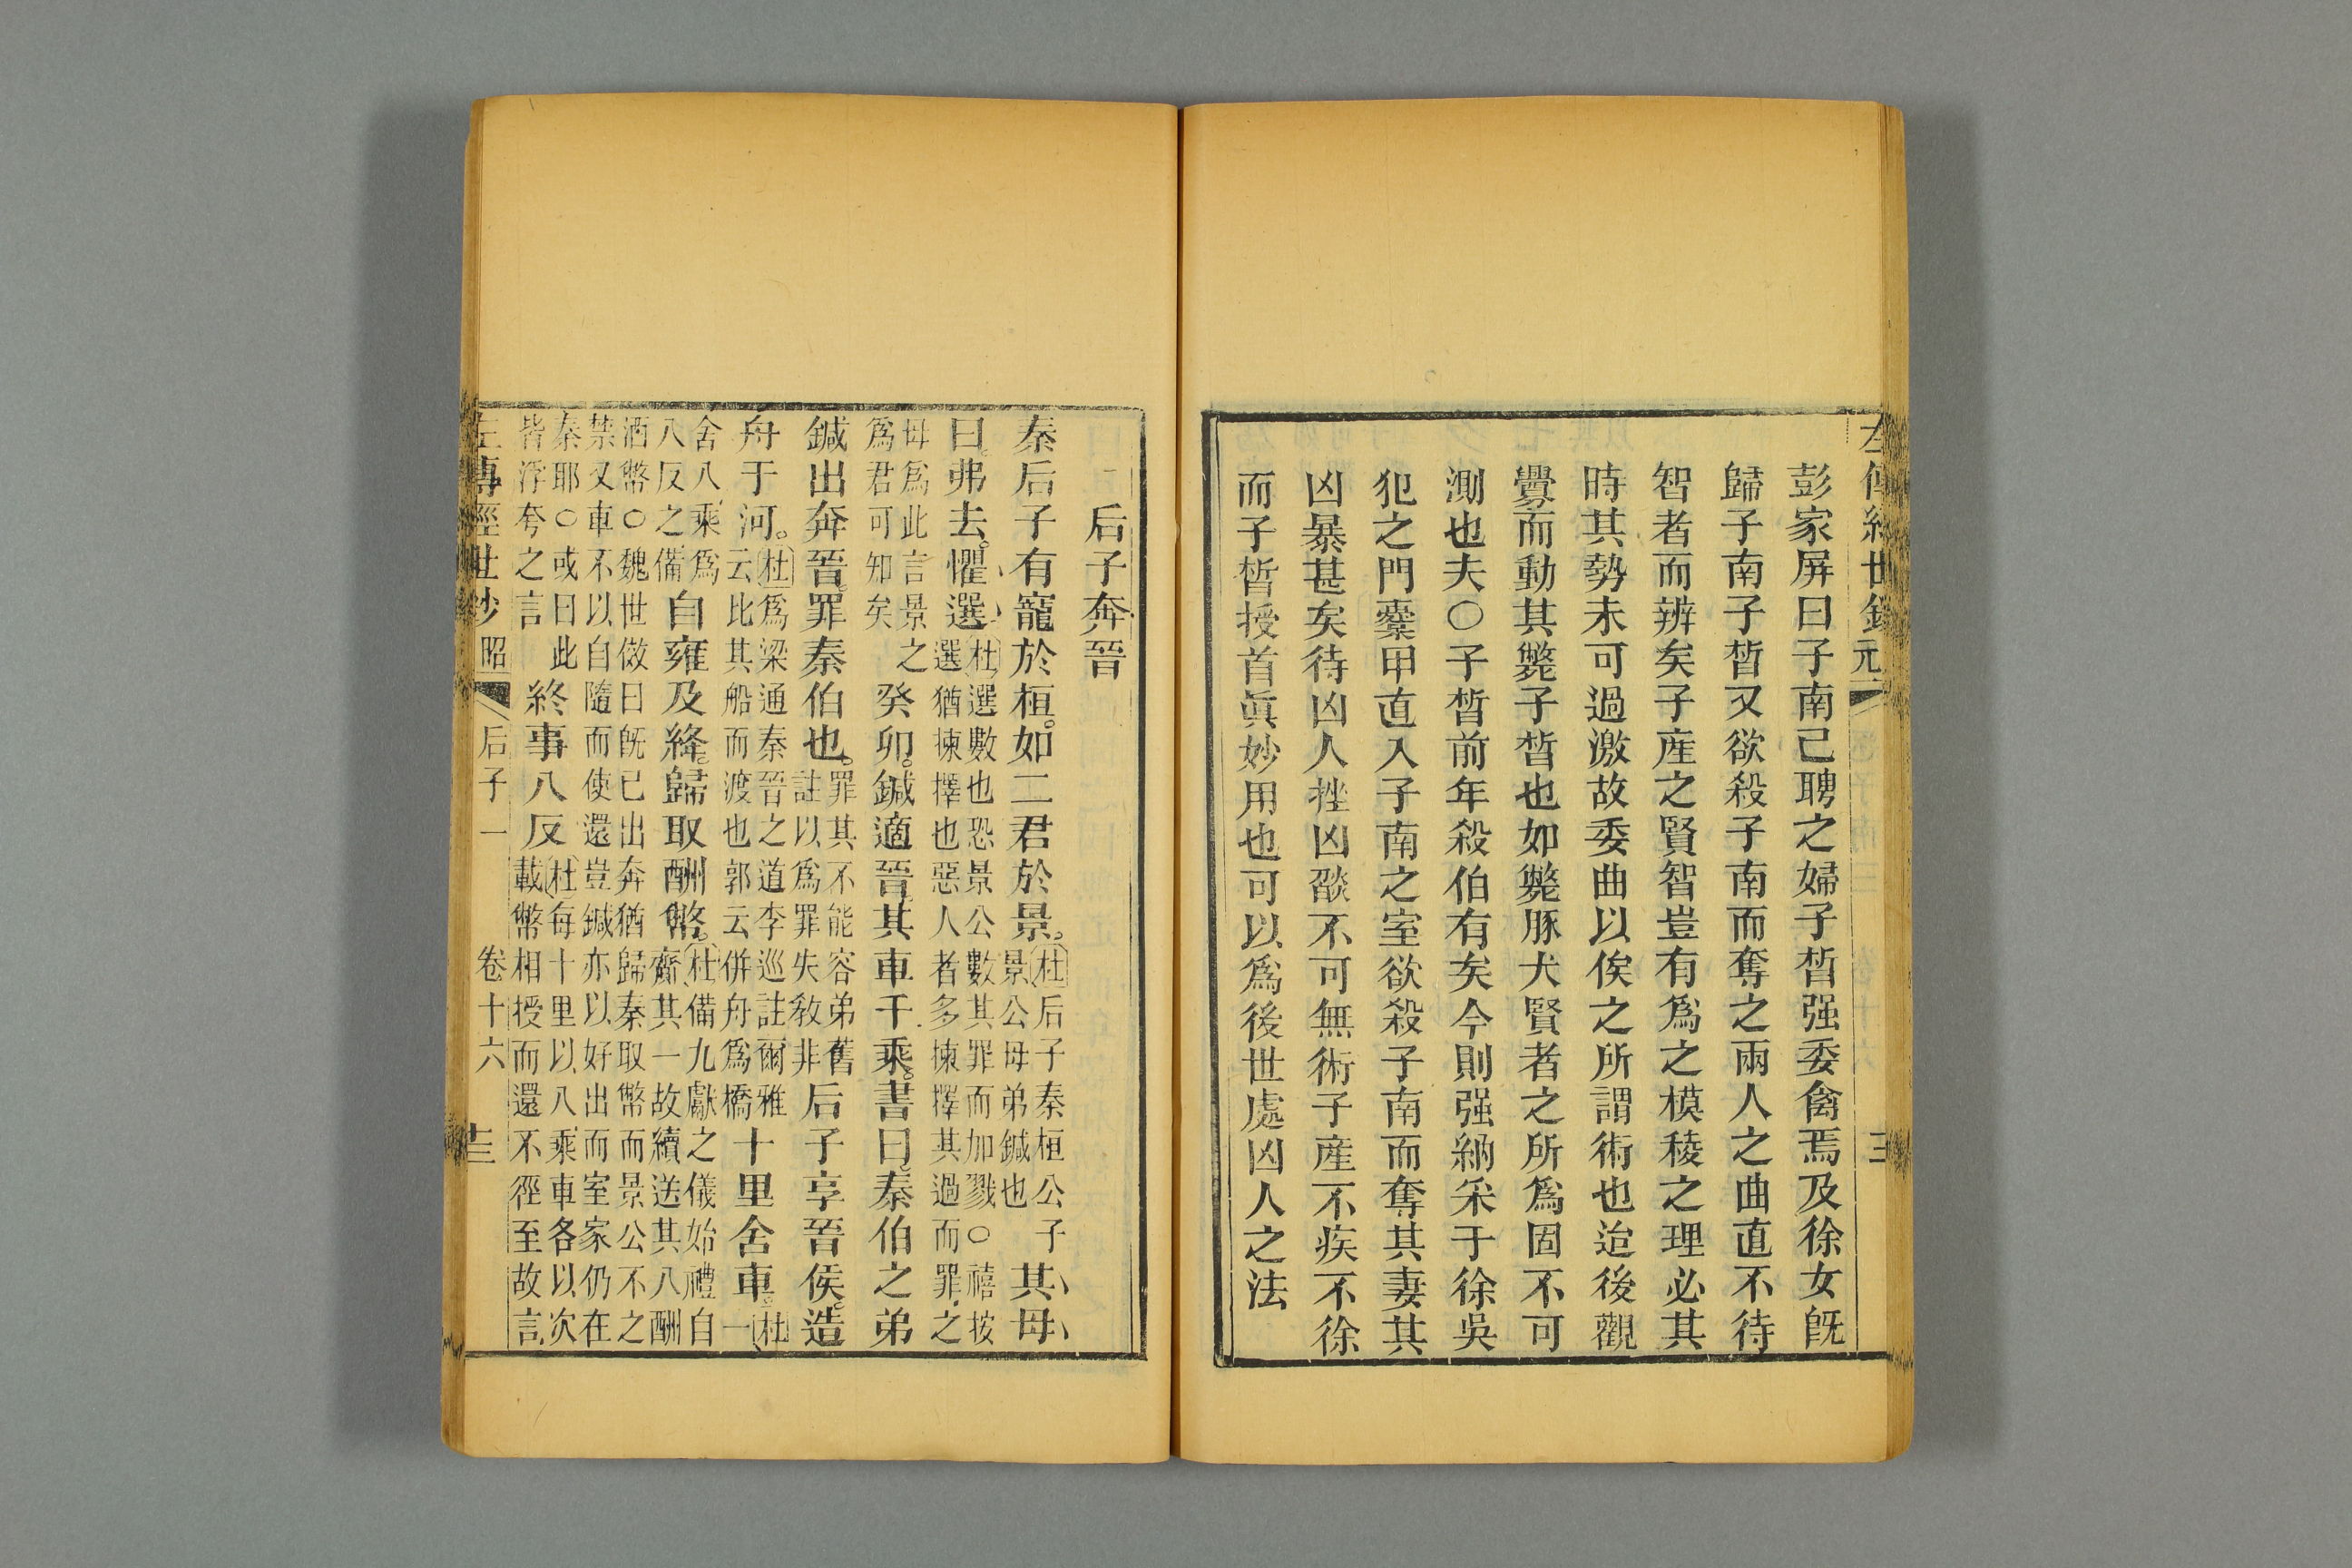 左傳經世鈔 元 三
彭家屏曰子南已聘之婦子晳强委禽焉及徐女旣
歸子南子晳又欲殺子南而奪之兩人之曲直不待
智者而辨矣子産之賢智豈有爲之模稜之理必其
時其勢未可過激故委曲以俟之所謂術也迨後觀
釁而動其斃子晳也如斃豚犬賢者之所爲固不可
測也夫○子晳前年殺伯有矣今則强納采于徐吳
犯之門櫜甲直入子南之室欲殺子南而奪其妻其
凶暴甚矣待凶人挫凶燄不可無術子産不疾不徐
而子晳授首眞妙用也可以爲後世處凶人之法
后子奔晉
秦后子有寵於桓如二君於景。杜后子秦桓公子景公母弟鍼也其母
曰弗去懼選杜選數也恐景公數其罪而加戮○禧按選猶揀擇也惡人者多揀擇其過而罪之
母爲此言景之爲君可知矣癸卯鍼適晉其車千乘書曰秦伯之弟
鍼出奔晉罪秦伯也。罪其不能容弟舊註以爲罪失敎非后子享晉侯。造
舟于河。杜爲梁通秦晉之道李巡註爾雅云比其船而渡也郭云併舟爲橋十里舍車。杜一
舍八乘爲八反之備自雍及絳。歸取酬幣。杜備九獻之儀始禮自齎其一故續送其八酬
酒幣○魏世傚曰旣已出奔猶歸秦取幣而景公不之禁又車不以自隨而使還豈鍼亦以好出而室家仍在
秦耶○或曰此皆浮夸之言終事八反杜每十里以八乘車各以次載幣相授而還不徑至故言
左傳經世鈔 昭 后子一 卷十六 十三